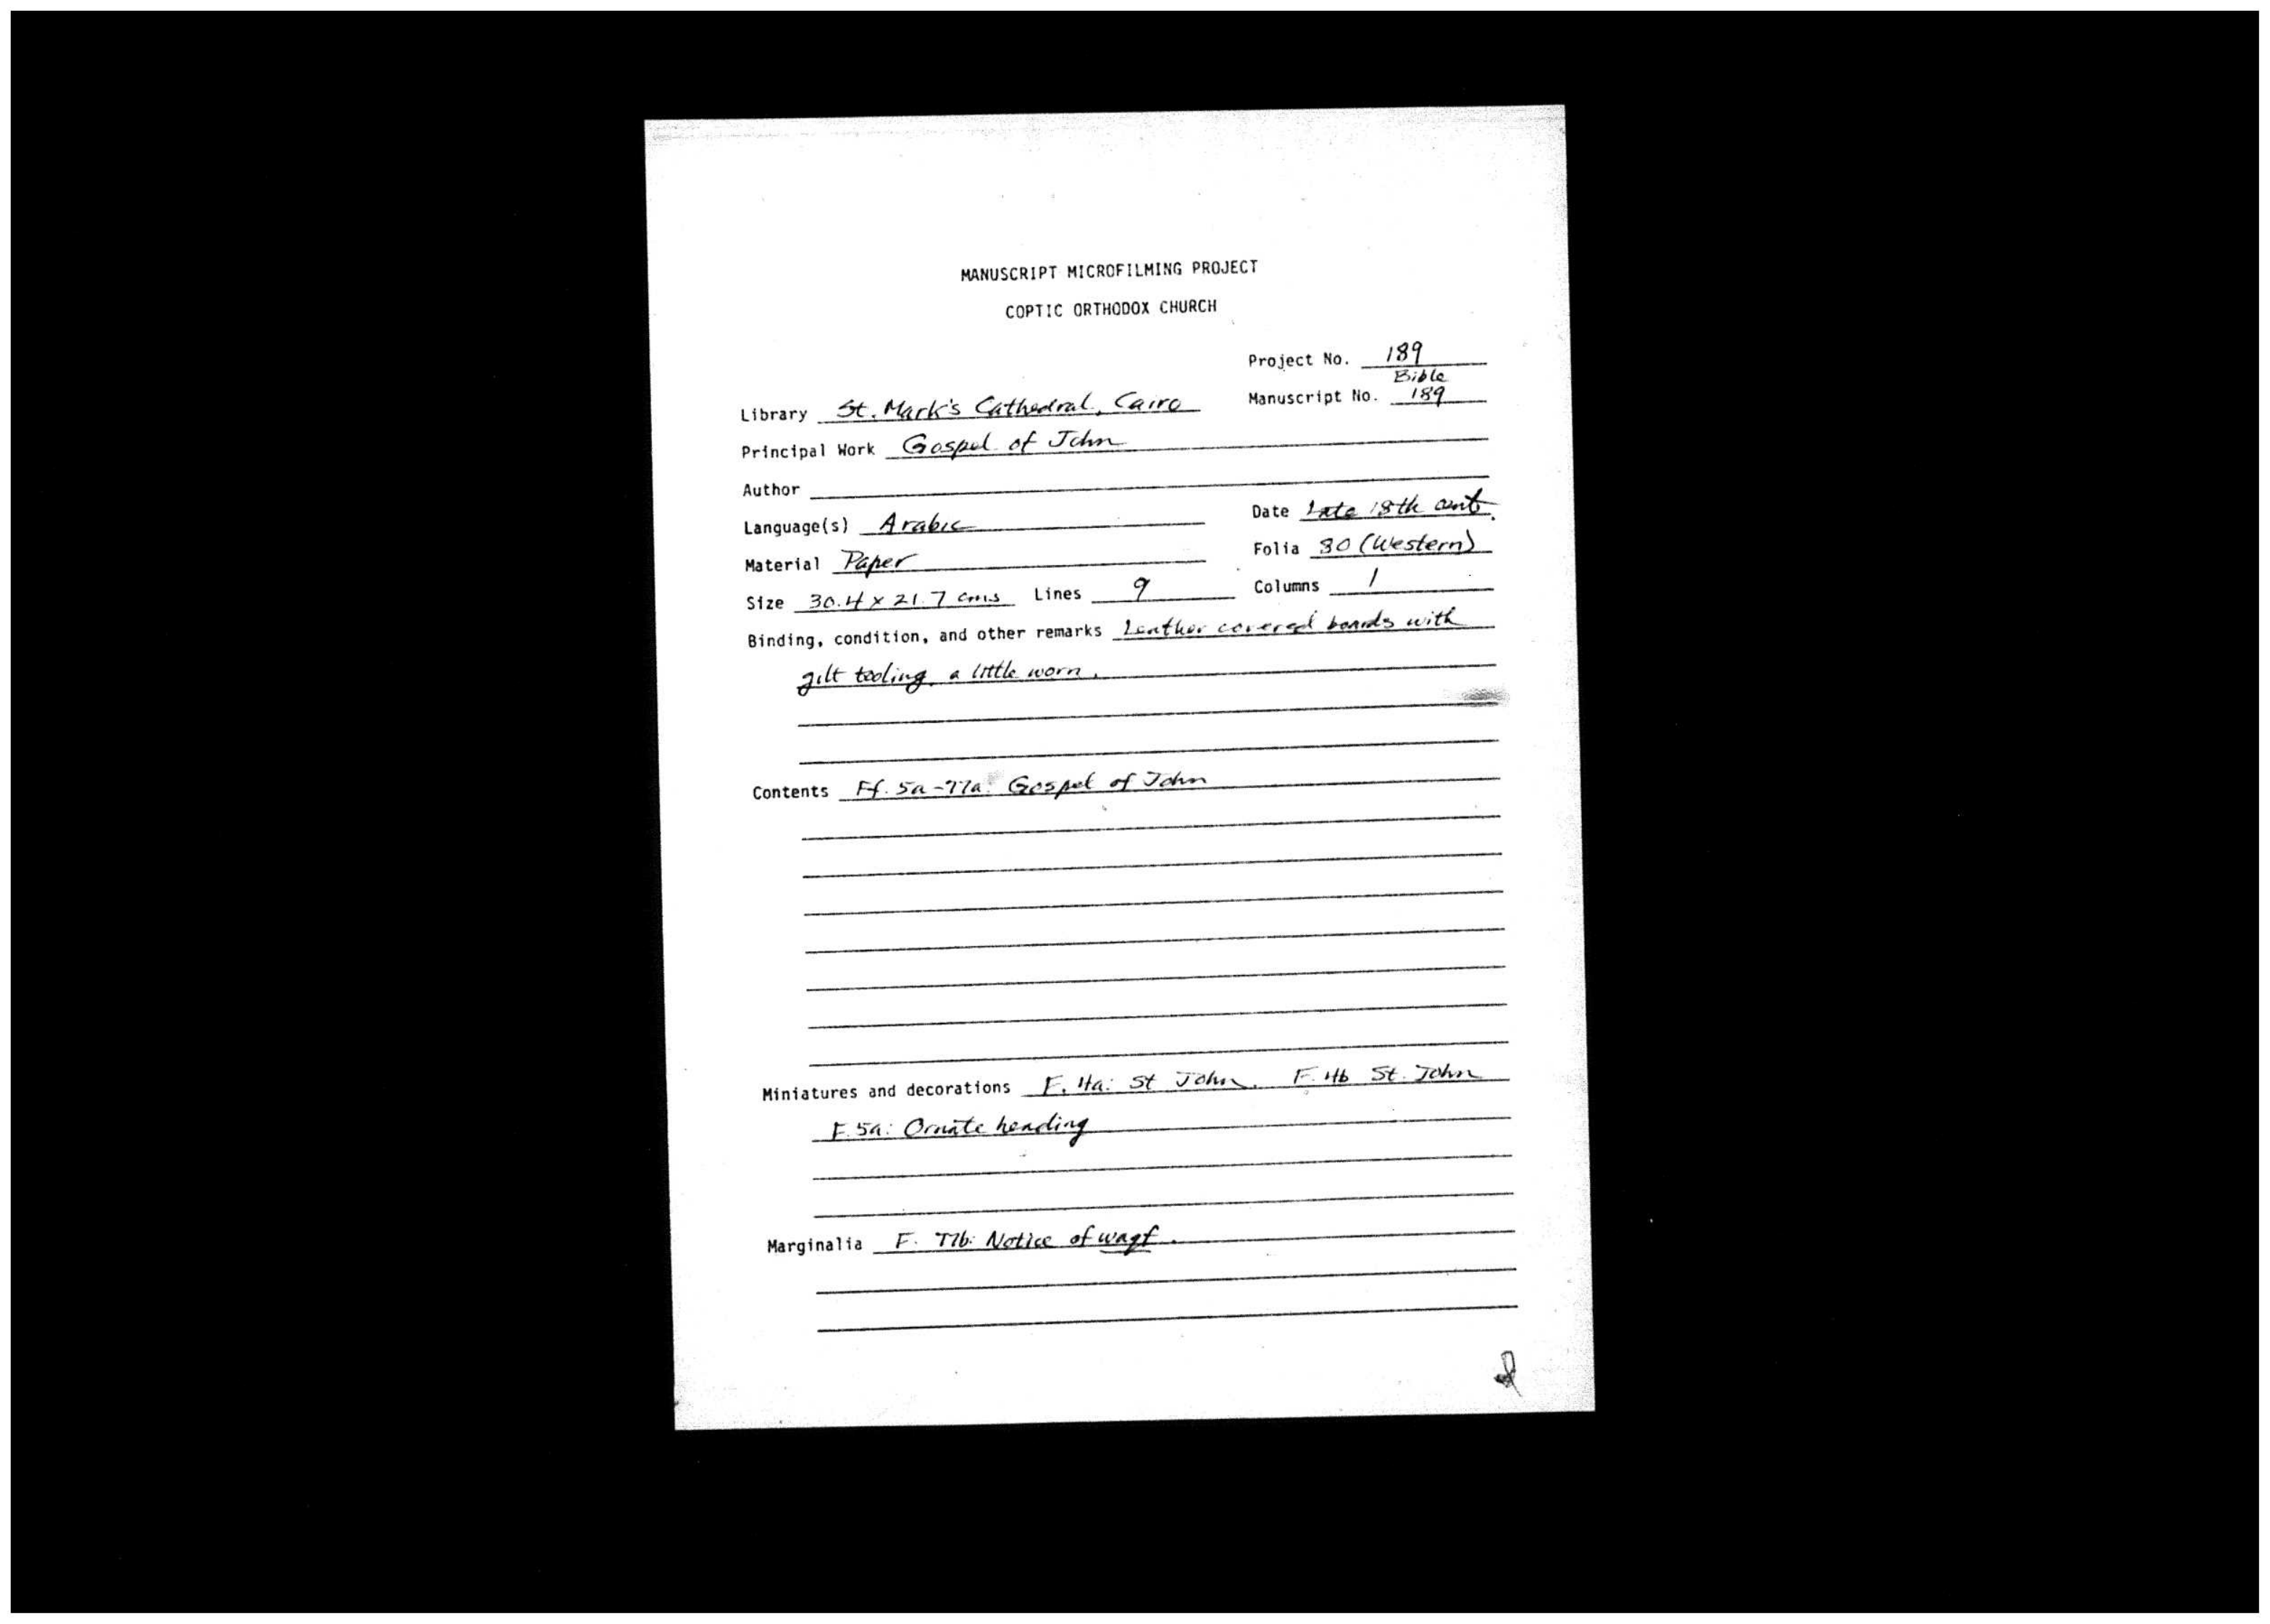 MANUSCRIPT MICROFILMING PROJECT
COPTIC ORTHODOX CHURCH
Project No. 189
Bible
Library St. Mark's Cathedral, Cairo Manuscript No. 189
Principal Work Gospel of John
Author
Language(s) Arabic Date Late 18th cent.
Material Paper Folia 80 (Western)
Size 30.4 x 21.7 cms Lines 9 Columns 1
Binding, condition, and other remarks Leather covered boards with
gilt tooling, a little worn.
Contents Ff. 5a-77a: Gospel of John
Miniatures and decorations F. 4a: St John. F. 4b St. John
F. 5a: Ornate heading
Marginalia F. 77b: Notice of waqf.